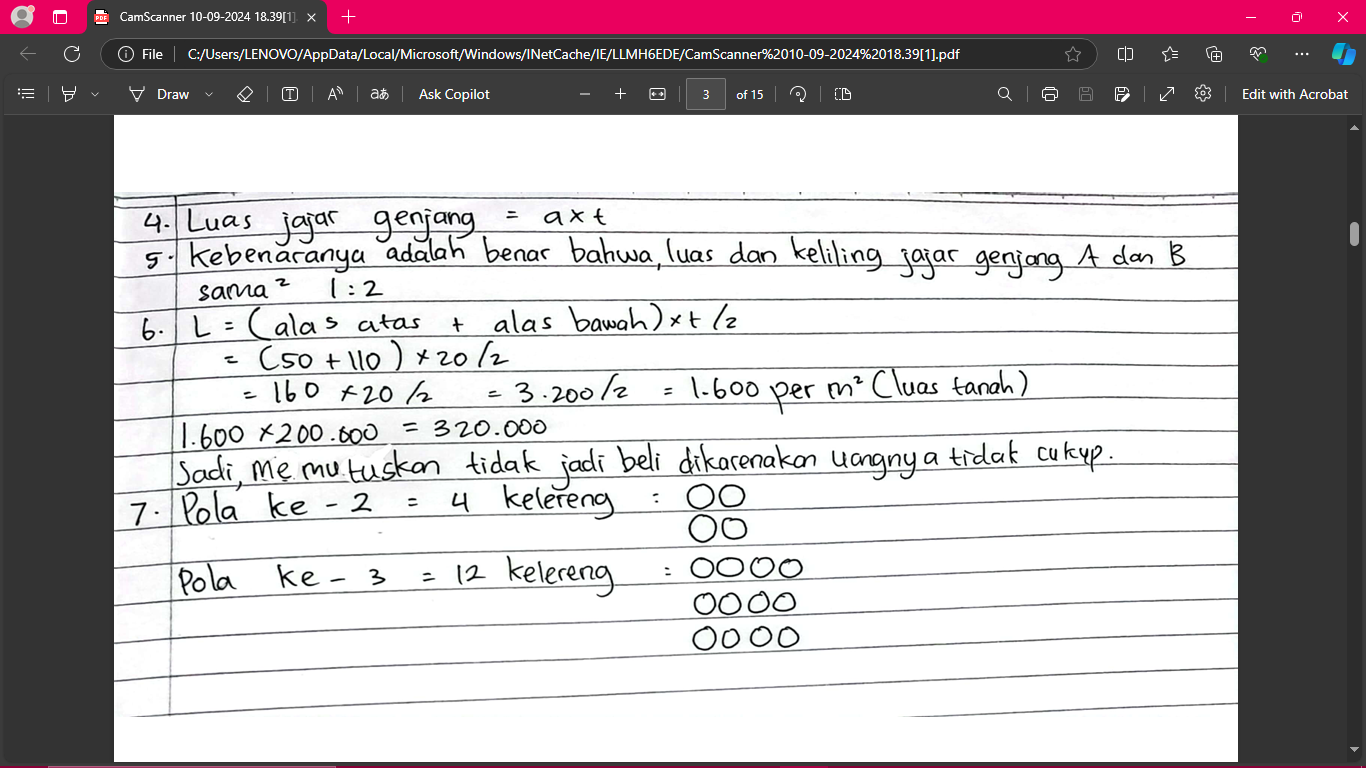 CamScanner 10-09-2024 18.39[1]
File C:/Users/LENOVO/AppData/Local/Microsoft/Windows/INetCache/IE/LLMH6EDE/CamScanner%2010-09-2024%2018.39[1].pdf
Draw Ask Copilot 3 of 15 Edit with Acrobat
4. Luas jajar genjang = a x t
5. Kebenaranya adalah benar bahwa, luas dan keliling jajar genjang A dan B
sama² 1 : 2
6. L = (alas atas + alas bawah) x t /2
= (50 + 110) x 20 /2
= 160 x 20 /2 = 3.200 /2 = 1.600 per m² (luas tanah)
1.600 x 200.000 = 320.000
Jadi, Memutuskan tidak jadi beli dikarenakan uangnya tidak cukup.
7. Pola ke - 2 = 4 kelereng : OO
OO
Pola ke - 3 = 12 kelereng : OOOO
OOOO
OOOO